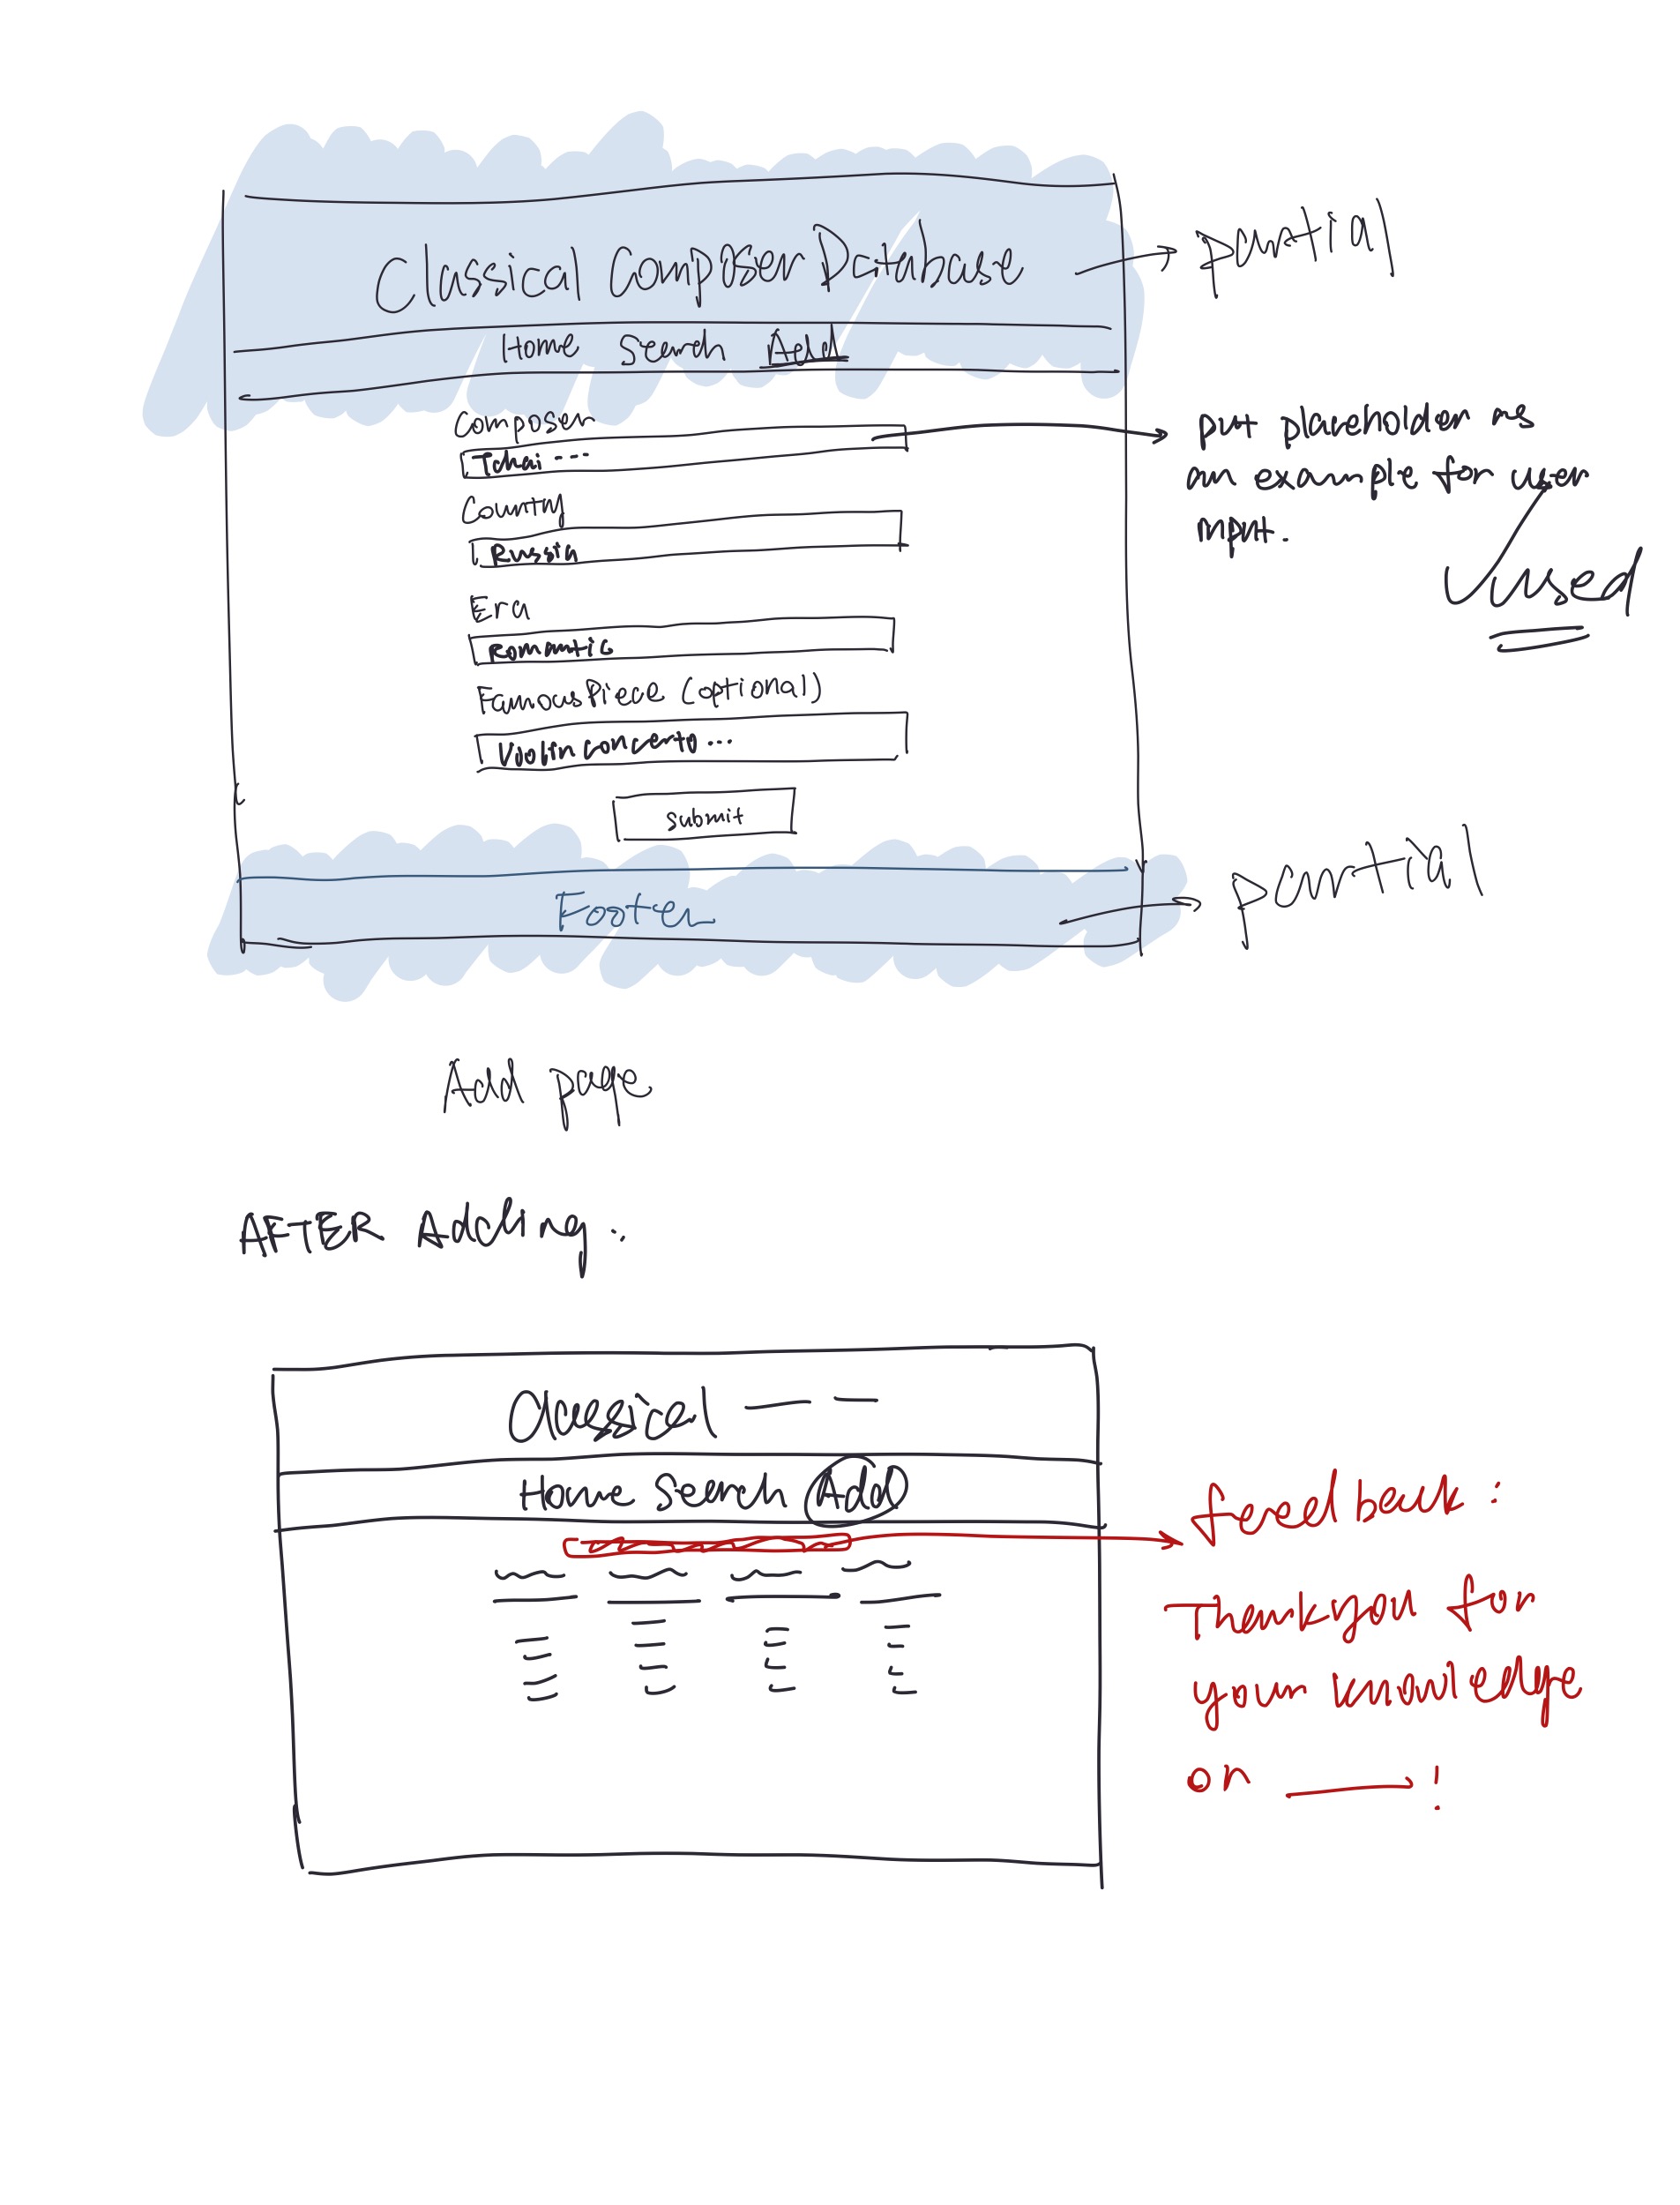 Classical Composer Database
→ partial
Home Search Add
Composer
Tchai ...
put placeholder as
an example for user
input.
used
Country
Russia
Era
Romantic
Famous Piece (optional)
Violin concerto ...
submit
Footer
→ partial
Add page
AFTER Adding:
Classical — —
Home Search Add
feedback:
Thank you for
your knowledge
on ____!